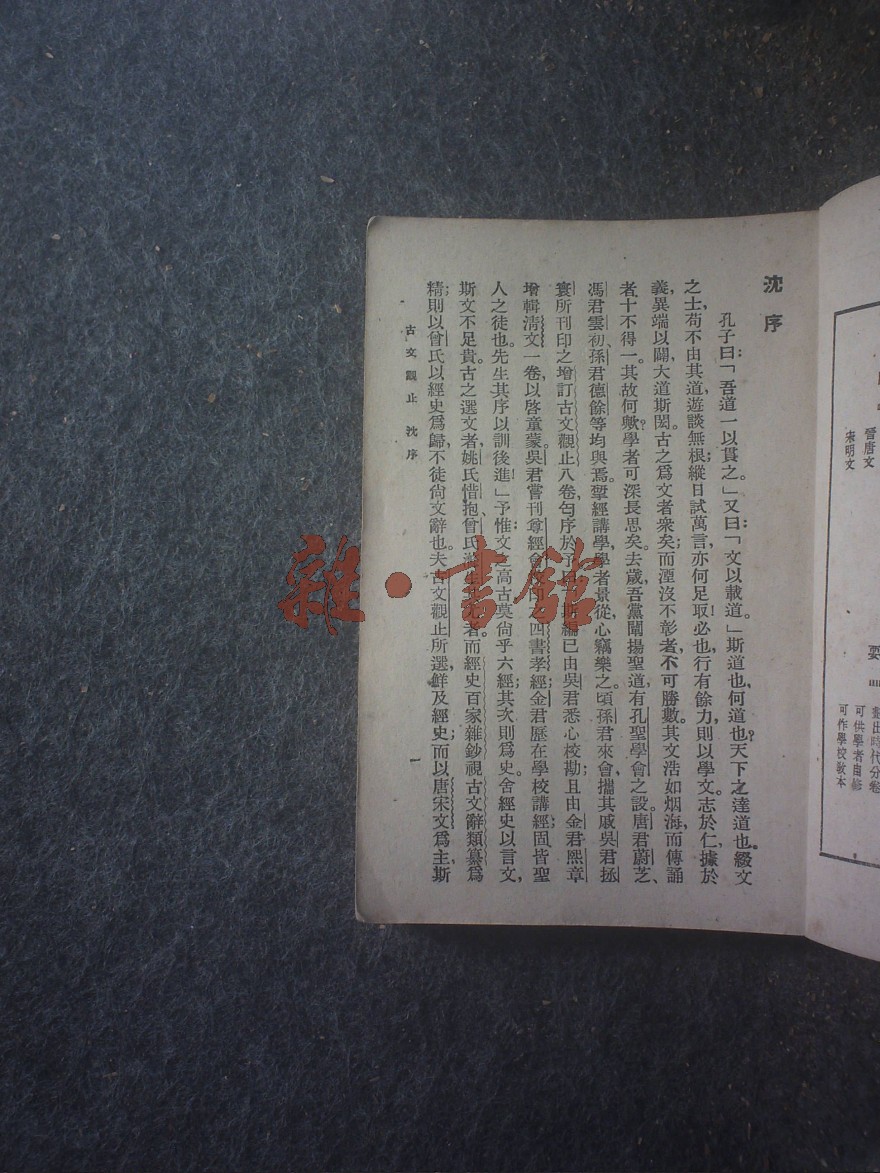 沈序
孔子曰：「吾道一以貫之。」又曰：「文以載道。」斯道也，何道也？天下之達道也。綴文
之士，苟不由其道，遊談無根；縱日試萬言，亦何足取！必也行有餘力，則以學文。志於仁，據於
義，異端以闢，大道斯閎。古之爲文者衆矣；而湮沒不彰者，不可勝數。其文浩如烟海，而傳誦
者十不得一。其故何歟？學者可深長思矣。去歲，吾黨闡揚聖道，有孔聖學會之設。唐君蔚芝、
馮君雲初、孫君德餘等均與焉。擘經講學，學者景從，心竊樂之。頃孫君來會，攜其戚吳君拯
寰所刊印之增訂古文觀止八卷，匄序於予曰：「斯編已由吳君悉心校勘，且由金君熙章
增輯淸文一卷，以啓童蒙。吳君嘗刊尊經會之四書孝經；金君歷在學校講經；固皆聖
人之徒也。先生其序以訓後進！」予惟文之高古，莫尙乎六經；其次則爲史。舍經史以言文，
斯文不足貴。古之選文者，姚氏惜抱、曾氏者。而經史百家雜鈔視古文辭類纂爲
精；則以曾氏以經史爲歸，不徒尙文辭也。夫古文觀止所選，鮮及經史；而以唐宋文爲主，斯
古文觀止 沈序
一
晉唐文
宋明文
時代分卷
可供學者自修
可作學校敎本
雜·書館